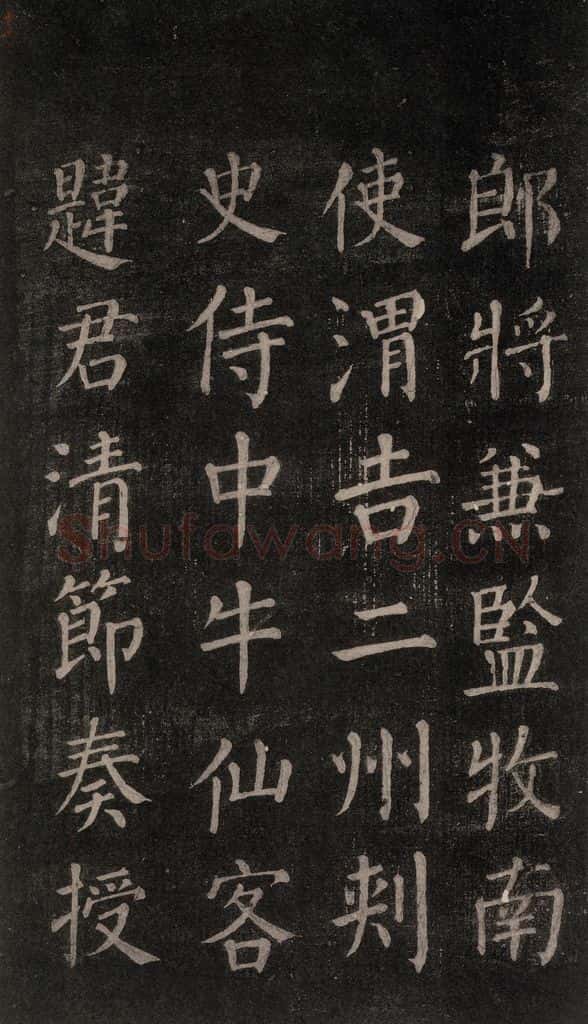 郎將兼監牧南
使渭吉二州刾
史侍中牛仙客
韙君清節奏授
Shufawang.CN